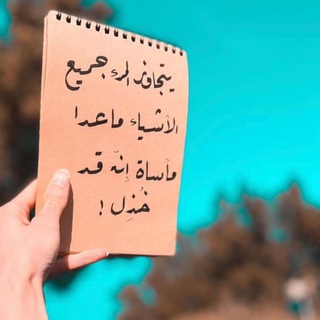 يتجاوز المرء جميع
الأشياء ماعدا
مأساة إنّه قد
خُذِل !